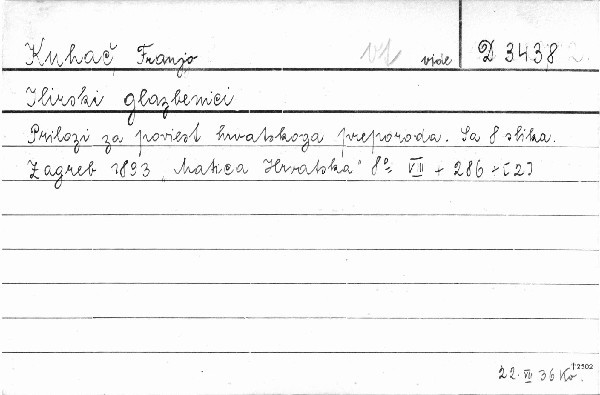 Kuhač Franjo vide D 3438
Ilirski glazbenici
Prilozi za poviest hrvatskoga preporoda. Sa 8 slika.
Zagreb 1893 „Matica Hrvatska" 8º VIII + 286 + [2]
22. VII 36 Ko.